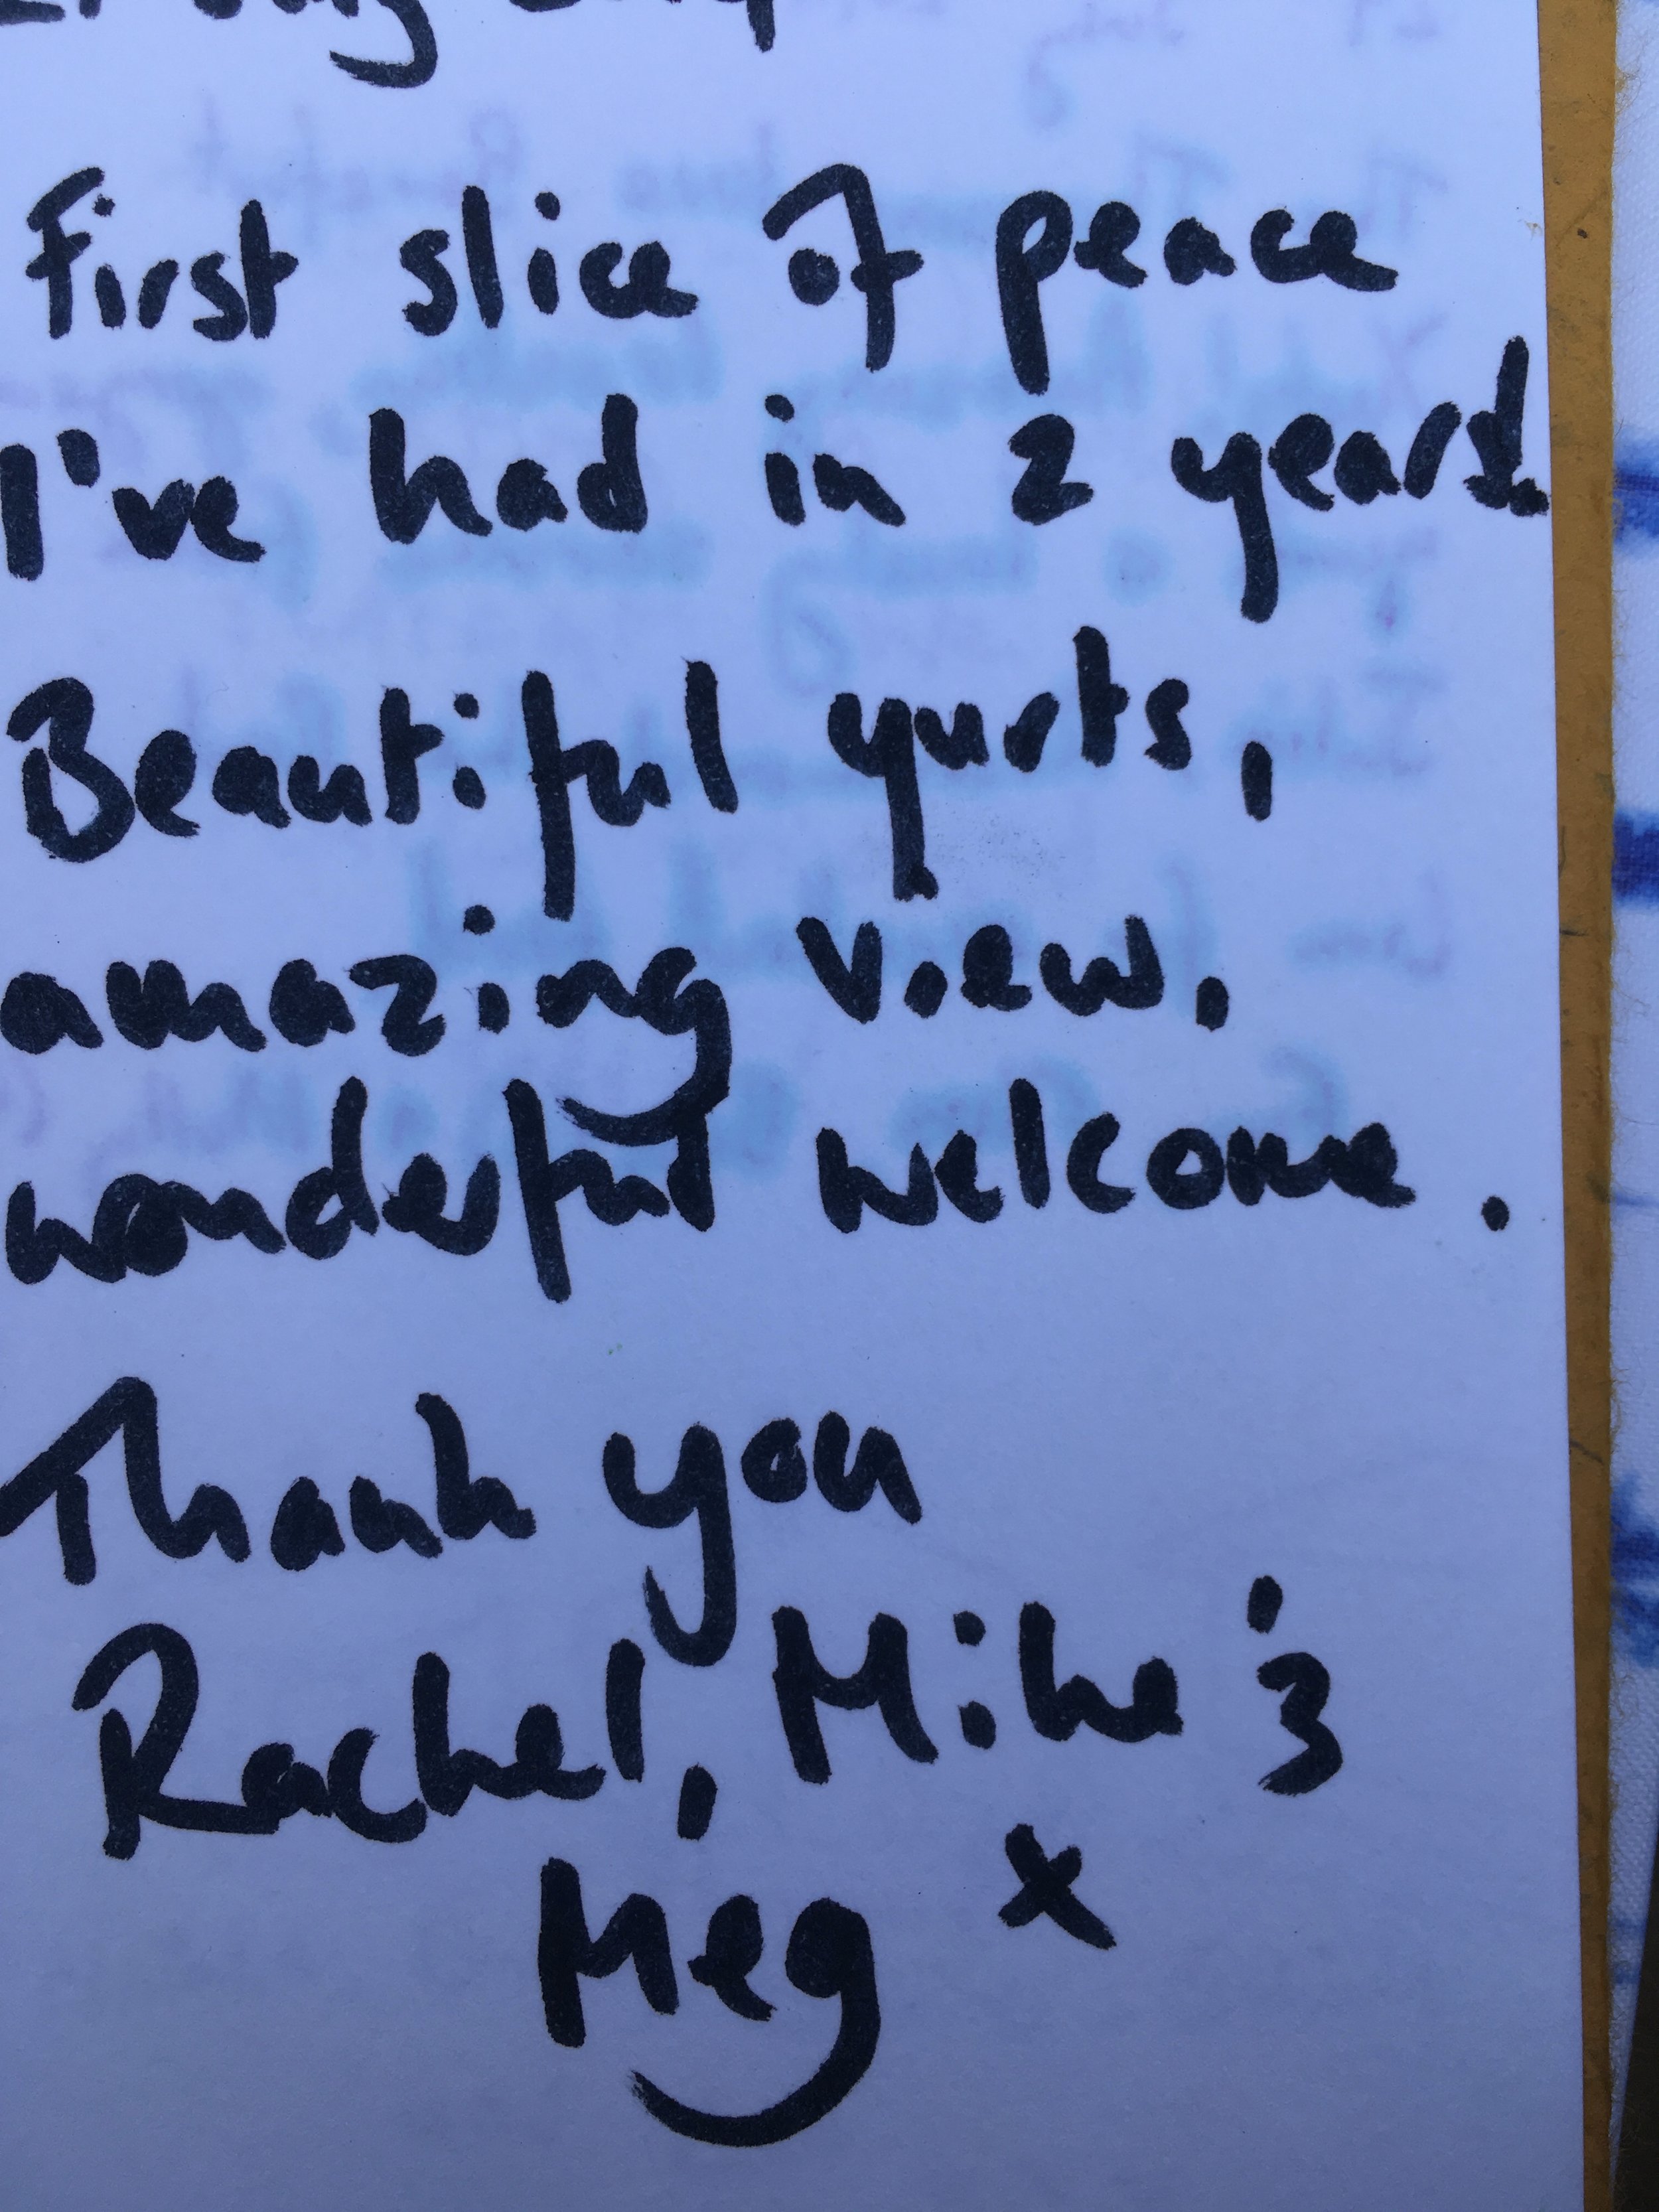 First slice of peace
I've had in 2 years!
Beautiful yurts,
amazing view,
wonderful welcome.
Thank you
Rachel, Mike &
Meg x